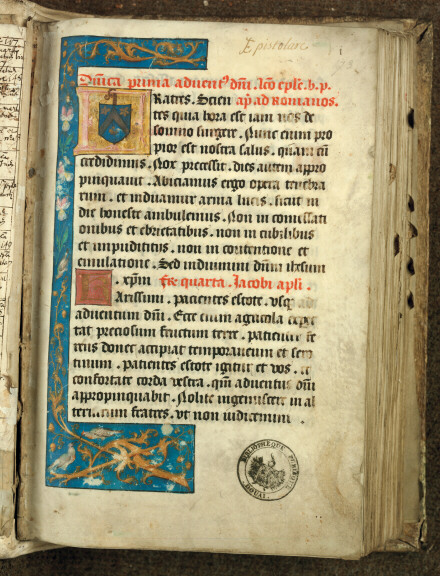 Epistolare
Dn̄ica prima aduent9 dn̄i. lc̄o ep̄le. b. p.
Ratres. Scien ap̄. ad Romanos.
tes quia hora est iam nos de
somno surgere. Nunc enim pro
pior est nostra salus. quam cū
credidimus. Nox precessit. dies autem appro
pinquauit. Abiciamus ergo opera tenebra
rum. et induamur arma lucis. sicut in
die honeste ambulemus. Non in comessati
onibus et ebrietatibus. non in cubilibus
et impudicitiis. non in contentione et
emulatione. Sed induimini dn̄m ihesum
xp̄m Fr̄ quarta. Jacobi apl̄i.
Arissimi. pacientes estote. vsq̄ ad
aduentum dn̄i. Ecce enim agricola expec
tat preciosum fructum terre. pacienter fe
rens donec accipiat temporaneum et sero
tinum. patientes estote igitur et vos. et
confortate corda vestra. qm̄ aduentus dn̄i
appropinquabit. Nolite ingemiscere in al
terutrum fratres. vt non iudicemini
BIBLIOTHEQUE PUBLIQUE
DOUAI